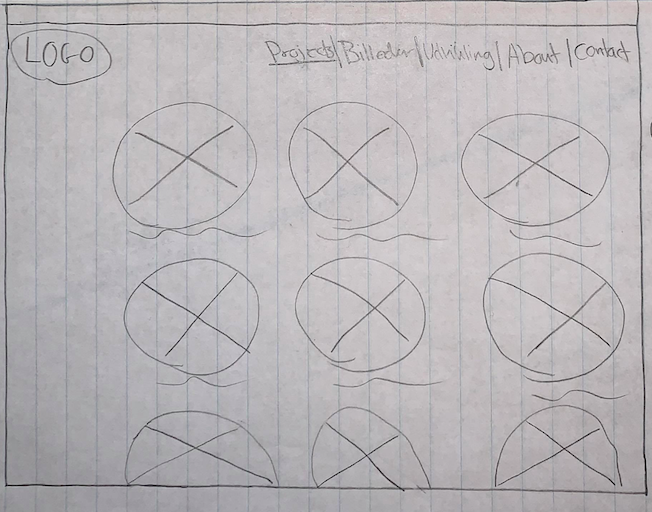 LOGO
Projects/Billeder/Udvikling/About/Contact